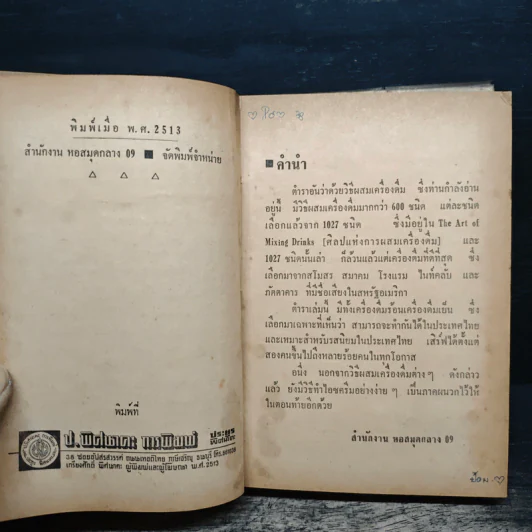 พิมพ์เมื่อ พ.ศ. 2513
สำนักงาน หอสมุดกลาง 09 ■ จัดพิมพ์จำหน่าย
△ △ △
พิมพ์ที่
ป.พิศนาคะ การพิมพ์
เกรียงศักดิ์ พิศนาคะ ผู้พิมพ์และผู้โฆษณา พ.ศ. 2513
■ คำนำ
ตำราอันว่าด้วยวิธีผสมเครื่องดื่ม ซึ่งท่านกำลังอ่าน
อยู่นี้ มีวิธีผสมเครื่องดื่มมากกว่า 600 ชนิด แต่ละชนิด
เลือกแล้วจาก 1027 ชนิด ซึ่งมีอยู่ใน The Art of
Mixing Drinks [ศิลปแห่งการผสมเครื่องดื่ม] และ
1027 ชนิดนั้นเล่า ก็ล้วนแล้วแต่เครื่องดื่มที่ดีที่สุด ซึ่ง
เลือกมาจากสโมสร สมาคม โรงแรม ไนท์คลับ และ
ภัตตาคาร ที่มีชื่อเสียงในสหรัฐอเมริกา
ตำราเล่มนี้ มีทั้งเครื่องดื่มร้อนเครื่องดื่มเย็น ซึ่ง
เลือกมาเฉพาะที่เห็นว่า สามารถจะทำกันได้ในประเทศไทย
และเหมาะสำหรับรสนิยมในประเทศไทย เสิร์ฟได้ตั้งแต่
สองคนขึ้นไปถึงหลายร้อยคนในทุกโอกาส
อนึ่ง นอกจากวิธีผสมเครื่องดื่มต่างๆ ดังกล่าว
แล้ว ยังมีวิธีทำไอซครีมอย่างง่ายๆ เป็นภาคผนวกไว้ให้
ในตอนท้ายอีกด้วย
สำนักงาน หอสมุดกลาง 09